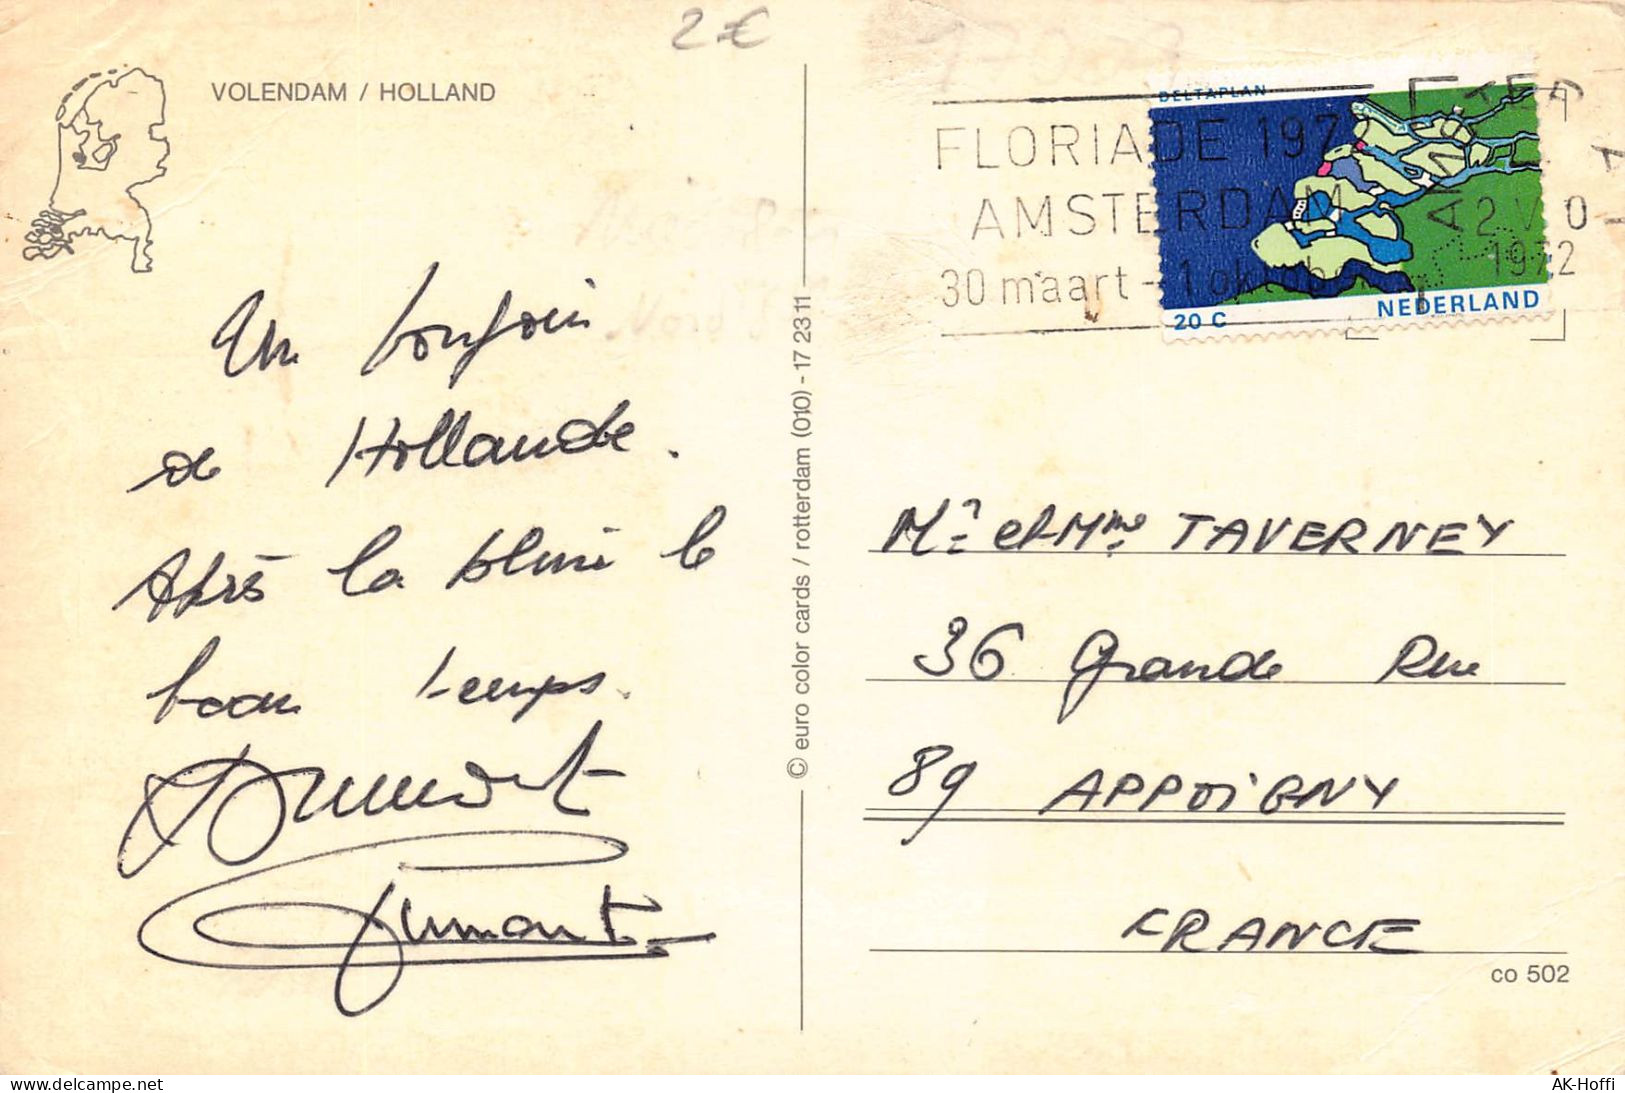 2 €
VOLENDAM / HOLLAND
DELTAPLAN
FLORIADE 1972
AMSTERDAM
30 maart - 1 oktob
2 V 0
1972
20 C
NEDERLAND
Un bonjour
de Hollande.
Après la pluie le
beau temps.
Dumont
© euro color cards / rotterdam (010) - 17 23 11
Mr et Mme TAVERNEY
36 Grande Rue
89 APPOIGNY
FRANCE
co 502
delcampe.net
AK-Hoffi